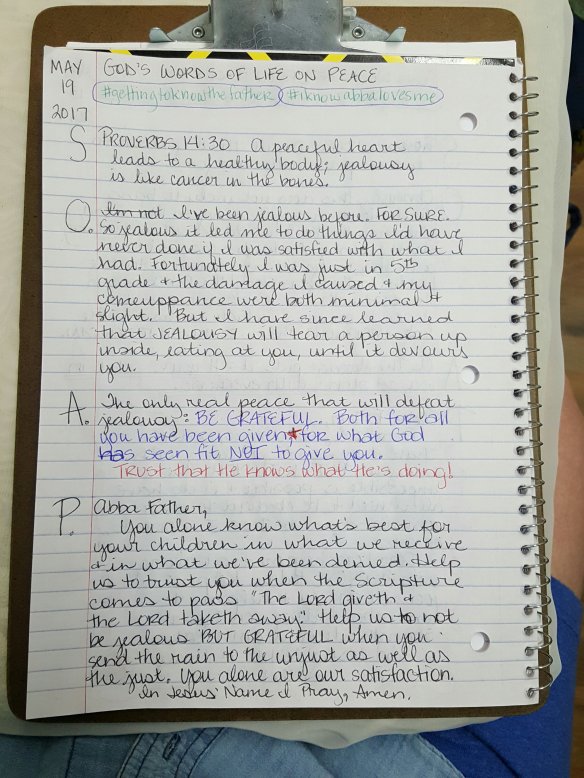 MAY
19
2017
GOD'S WORDS OF LIFE ON PEACE
#gettingtoknowthefather #iknowabbalovesme
S PROVERBS 14:30 A peaceful heart
leads to a healthy body; jealousy
is like cancer in the bones.
O. I'm not I've been jealous before. FOR SURE.
So jealous it led me to do things I'd have
never done if I was satisfied with what I
had. Fortunately I was just in 5th
grade & the damage I caused & my
comeuppance were both minimal &
slight. But I have since learned
that JEALOUSY will tear a person up
inside, eating at you, until it devours
you.
A. The only real peace that will defeat
jealousy: BE GRATEFUL. Both for all
you have been given, * for what God
has seen fit NOT to give you.
TRUST that He knows what He's doing!
P. Abba Father,
You alone know what's best for
your children in what we receive
& in what we've been denied. Help
us to trust you when the Scripture
comes to pass "The Lord giveth &
the Lord taketh away." Help us to not
be jealous BUT GRATEFUL when you
send the rain to the unjust as well as
the just. You alone are our satisfaction.
In Jesus' Name I Pray, Amen.